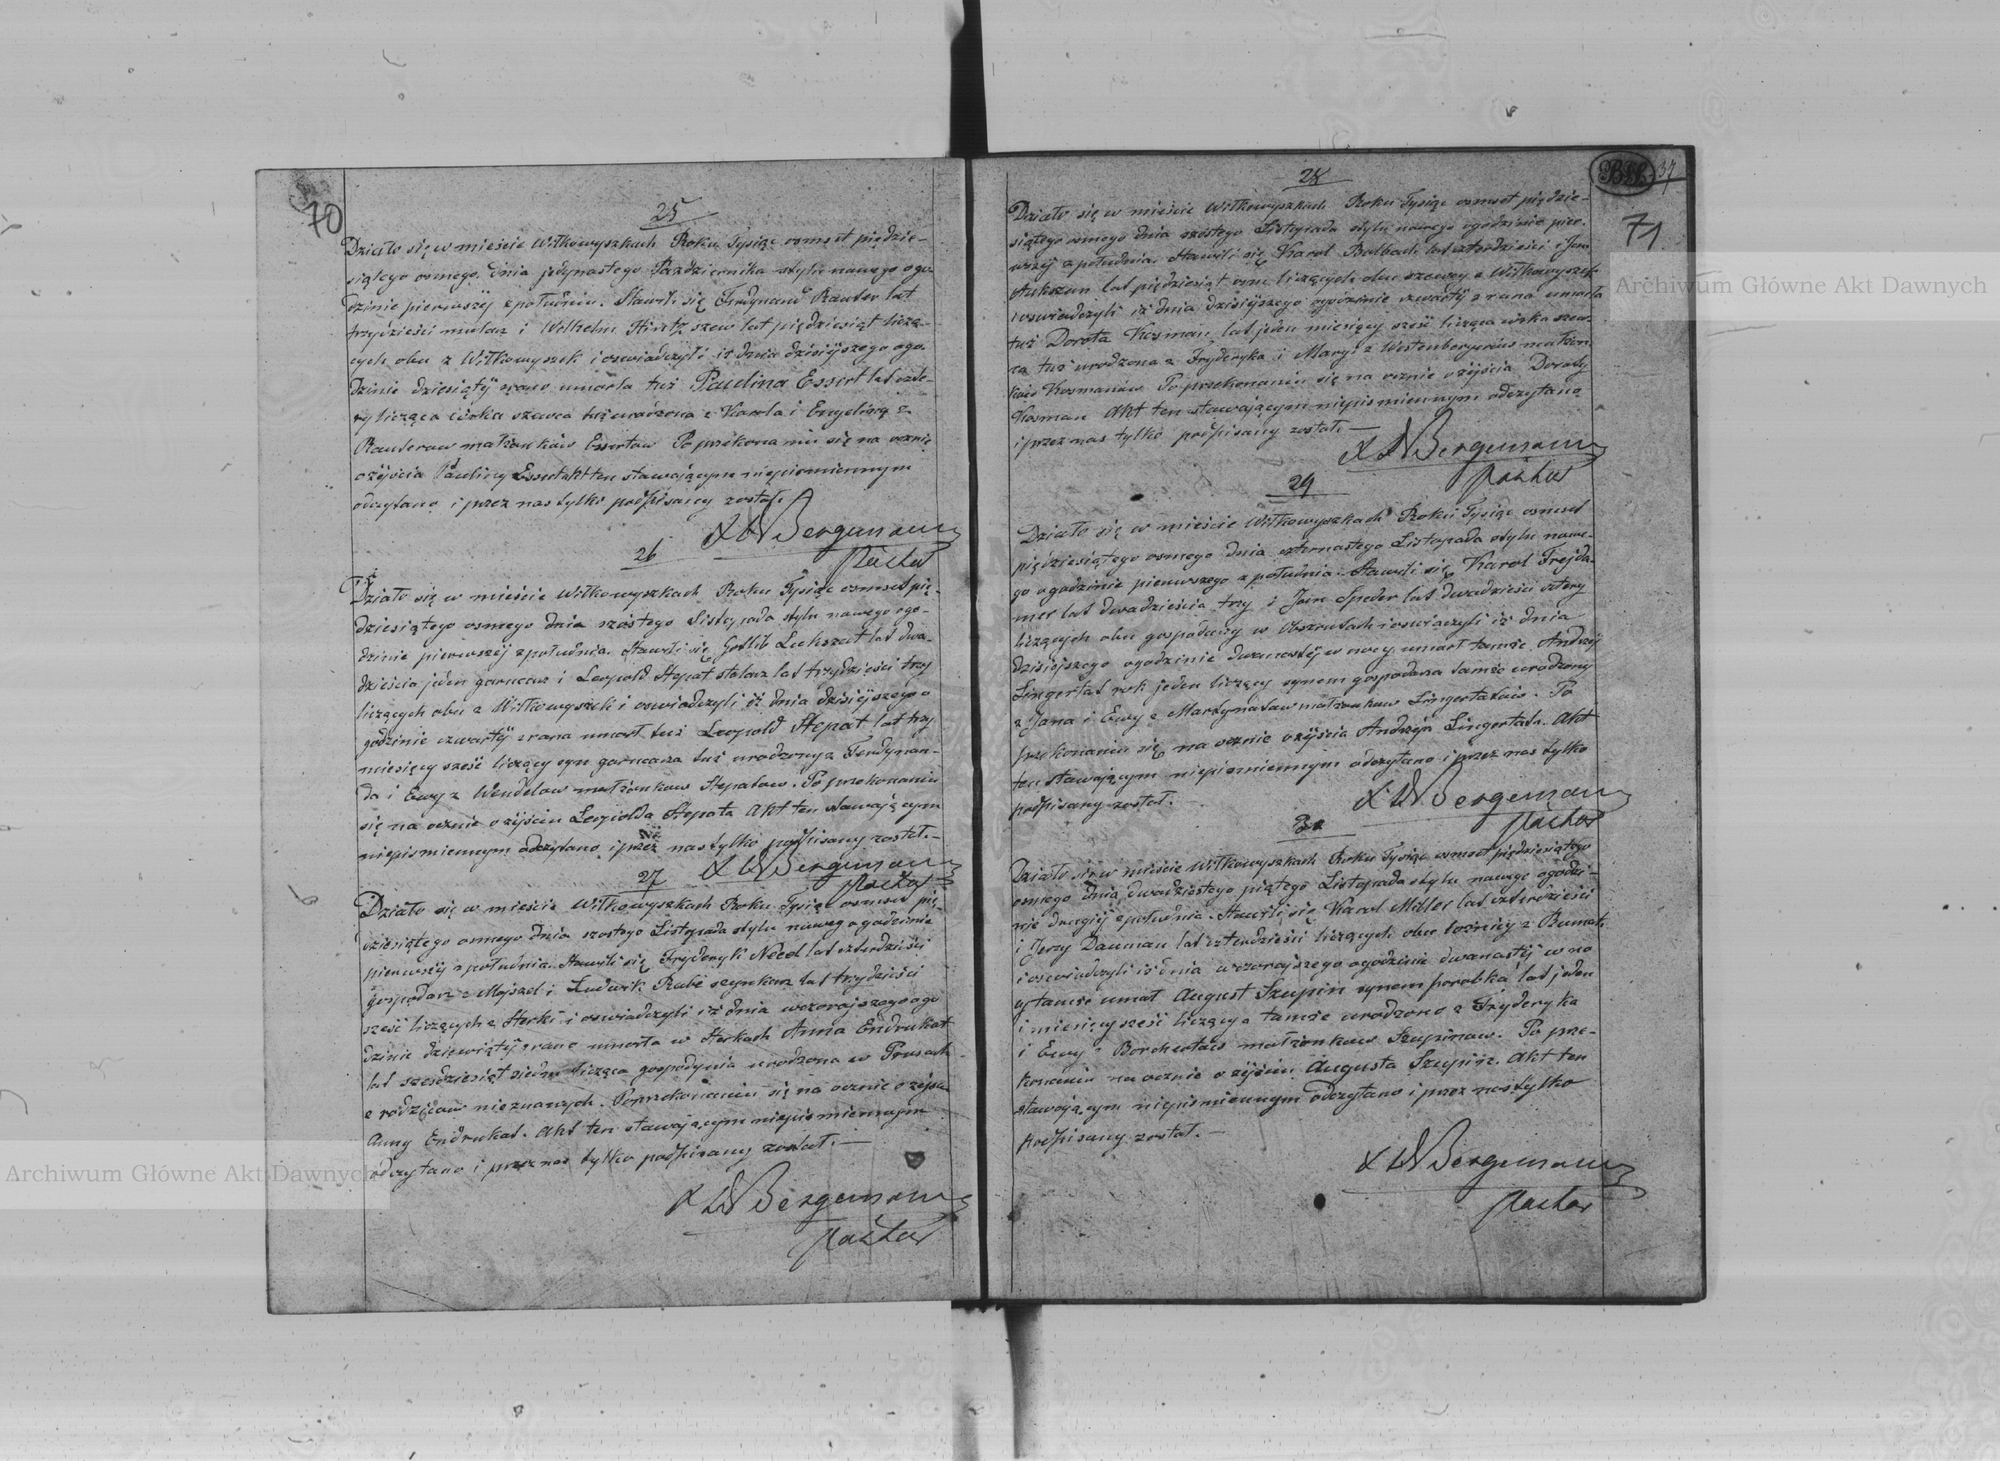 70
25
Działo się w mieście Wiłkowyszkach Roku Tysiąc osmset piędzie-
siątego osmego, dnia jedynastego Pazdziernika stylu nawego ogo-
dzinie pierwszéj zpołudniu. Stawili się Ferdynand Rauter lat
trzydzieści mularz i Wilhelm Hirtz szewc lat pięddziesiąt liczą-
cych obu z Wiłkowyszek i oswiadczyli iż dnia dzisiejszego ogo-
dzinie dziesiątéj zrana umarła tuż Paulina Essert lat czte-
ry licząca córka szewca tuż urodzona z Karola i Engeliny z
Rauterow małżonków Essertow Po przekonaniu się na ocznie
ozéjscia Pauliny Essert Akt ten stawającym niepismiennym
odczytano i przez nas tylko podpisany został.
X W Bergemann
Pastor
26
Działo się w mieście Wiłkowyszkach Roku Tysiąc osmset pię-
dziesiątego osmego dnia szóstego Listopada stylu nawego ogo-
dzinie pierwszéj zpołudnia. Stawili się Gotlib Lukszat lat dwa-
dzieścia jeden garncarz i Leopold Stepat stolarz lat trzydzieści trzy
liczących obu z Wiłkowyszek i oswiadczyli iż dnia dzisiejszego o
godzinie czwartéj zrana umarł tuż Leopold Stepat lat trzy
miesięcy sześć liczący syn garncarza tuż urodzony z Ferdynan-
da i Ewy z Wendelow małżonkow Stepatow. Po przekonaniu
się na ocznie ozéjściu Leopolda Stepata Akt ten stawającym
niepismiennym odczytano i przez nas tylko podpisany został.-
X W Bergemann
Pastor
27
Działo się w mieście Wiłkowyszkach Roku Tysiąc osmset pię-
dziesiątego osmego dnia szostego Listopada stylu naweg ogodzinie
pierwszéj zpołudnia. Stawili się Fryderyk Necel lat czterdzieści
gospodarz z Majszel i Ludwik Rubé szynkarz lat trzydzieści
sześć liczących z Sterki i oswiadczyli iż dnia wczorajszego ogo
dzinie dziewiątéj zrana umarła w Sterkach Anna Endrukat
lat szesdziesiąt siedm licząca gospodynia urodzona w Prusach
z rodziców nieznanych. Po przekonaniu się na ocznie ozejsciu
Anny Endrukat. Akt ten stawającym niepismiennym
odczytano i przez nas tylko podpisany został.—
X W Bergemann
Pastor
28
37
71
Działo się w mieście Wiłkowyszkach Roku Tysiąc osmset piędzie-
siątego osmego dnia szóstego Listopada stylu nawego ogodzinie pier-
wszéj zpołudnia. Stawili się Karol Balbach lat czterdzieści i Jan
Aukszun lat pięćdziesiąt osm liczących obu szewcy z Wiłkowyszek
i oswiadczyli iż dnia dzisiejszego ogodzinie czwartéj zrana umarła
tuż Dorota Kosman, lat jeden miesięcy sześć licząca córka szew-
ca tuż urodzona z Fryderyka i Maryi z Westenbergerow małżon-
ków Kosmanów Po przekonaniu się na ocznie ozéjścia Doroty
Kosman Akt ten stawającym niepismiennym odczytano
i przez nas tylko podpisany został.—
X W Bergemann
Pastor
29
Działo się w mieście Wiłkowyszkach Roku Tysiąc osmset
pięddziesiątego osmego dnia czternastego Listopada stylu nawe-
go ogodzinie pierwszego zpołudnia. Stawili się Karol Frejda-
mer lat dwadzieścia trzy i Jan Speder lat dwadzieści cztery
liczących obu gospodarzy w Obszrutach i oswiaczyli iż dnia
dzisiejszego ogodzinie dwanastéj w nocy umarł tamże Andrzéj
Lingertat rok jeden liczący synem gospodarza tamże urodzony
z Jana i Ewy z Martynatow małżonkow Lingertatów. Po
przekonaniu się na ocznie ozéjścia Andrzeja Lingertata. Akt
ten stawającym niepismiennym odczytano i przez nas tylko
podpisany został.
X W Bergemann
Pastor
30
Działo się w mieście Wiłkowyszkach Roku Tysiąc osmset piędziesiątego
osmego dnia dwadziestego piątego Listopada stylu nawego ogodzi-
nie drugiéj zpołudnia. Stawili się Karol Miller lat czterdzieści
i Jerzy Dauman lat czterdzieści liczących obu z Rumak
i oswiadczyli iż dnia wczorajszego ogodzinie dwanastéj w no
cy tamże umarł August Szupin synem parobka lat jeden
i miesięcy sześć liczący a tamże urodzono z Fryderyka
i Ewy z Borchertow małżonkow Szupinow. Po prze-
konaniu na ocznie ozéjściu Augusta Szupin. Akt ten
stawającym niepismiennym odczytano i przez nas tylko
podpisany został.—
X W Bergemann
Pastor
Archiwum Główne Akt Dawnych
Archiwum Główne Akt Dawnych